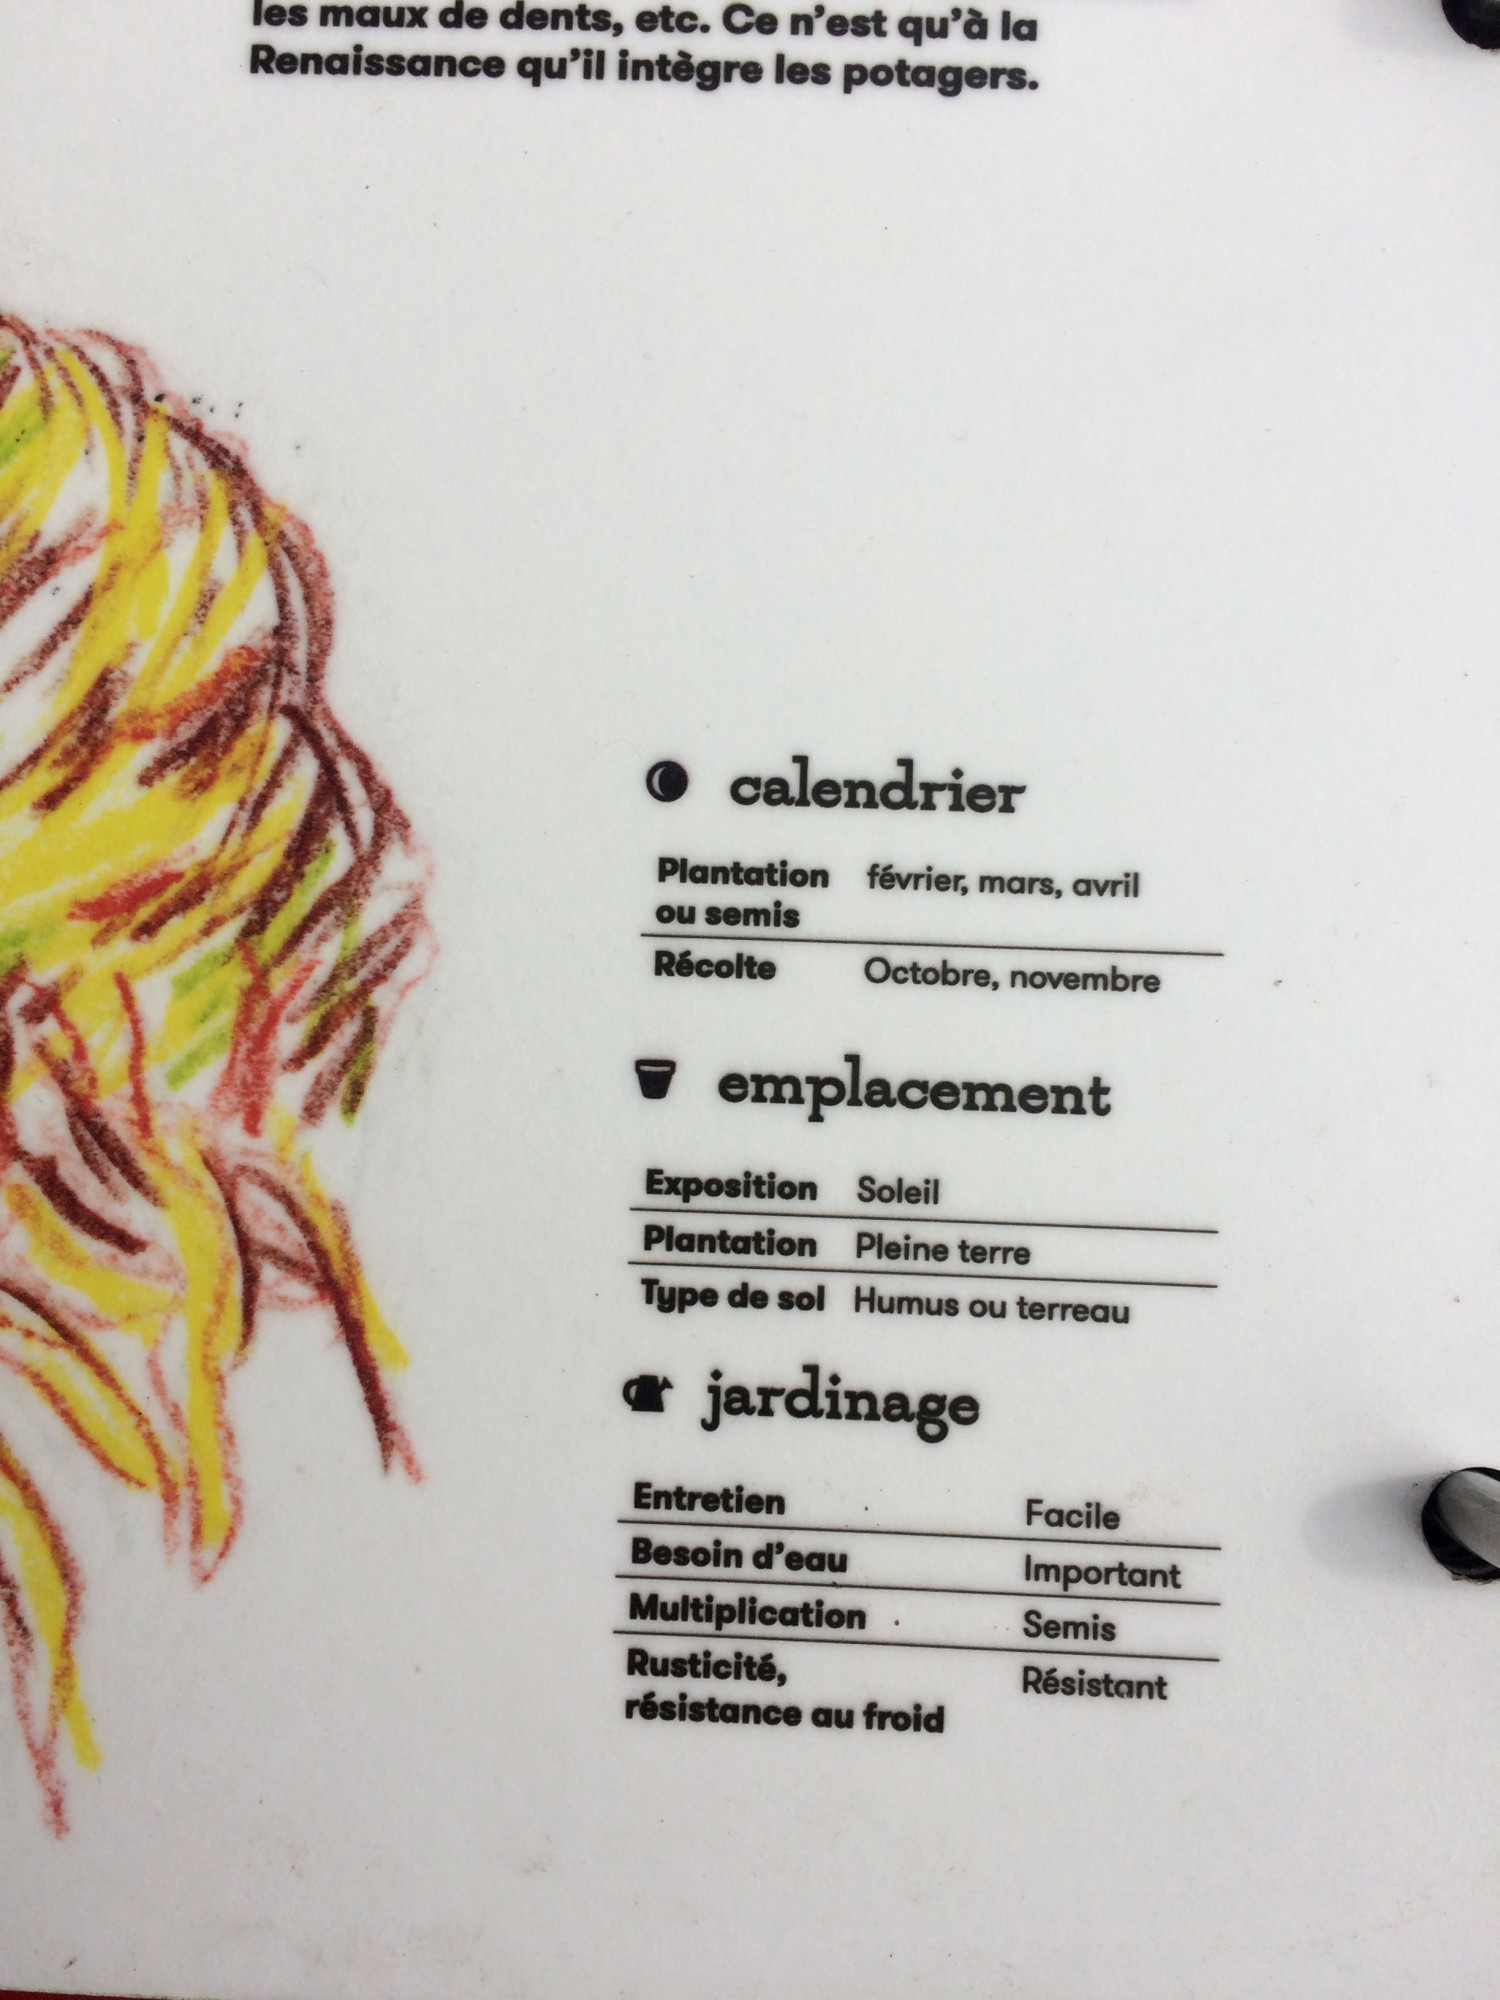 les maux de dents, etc. Ce n’est qu’à la
Renaissance qu’il intègre les potagers.
calendrier
Plantation février, mars, avril
ou semis
Récolte Octobre, novembre
emplacement
Exposition Soleil
Plantation Pleine terre
Type de sol Humus ou terreau
jardinage
Entretien Facile
Besoin d’eau Important
Multiplication Semis
Rusticité, Résistant
résistance au froid